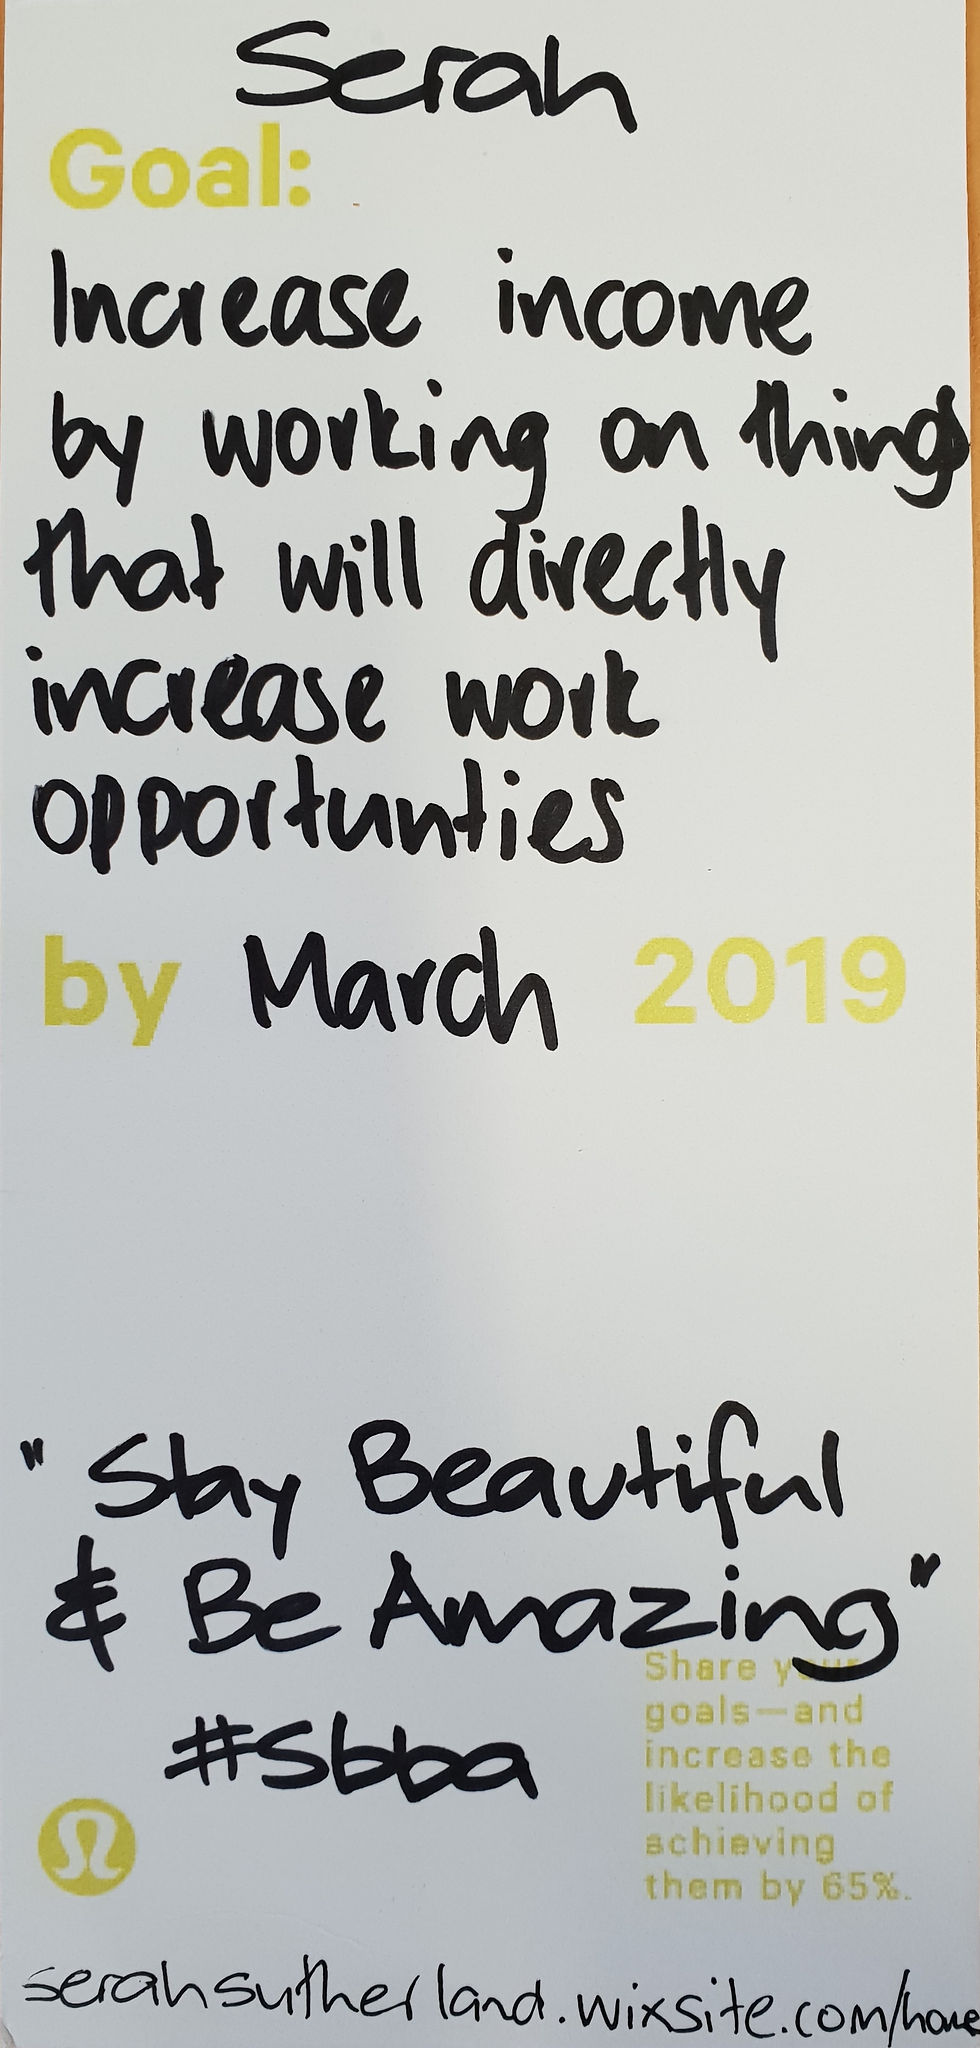 Serah
Goal:
Increase income
by working on things
that will directly
increase work
opportunties
by March 2019
"Stay Beautiful
& Be Amazing"
Share your
goals—and
increase the
likelihood of
achieving
them by 65%.
#Sbba
serahsutherland.wixsite.com/home